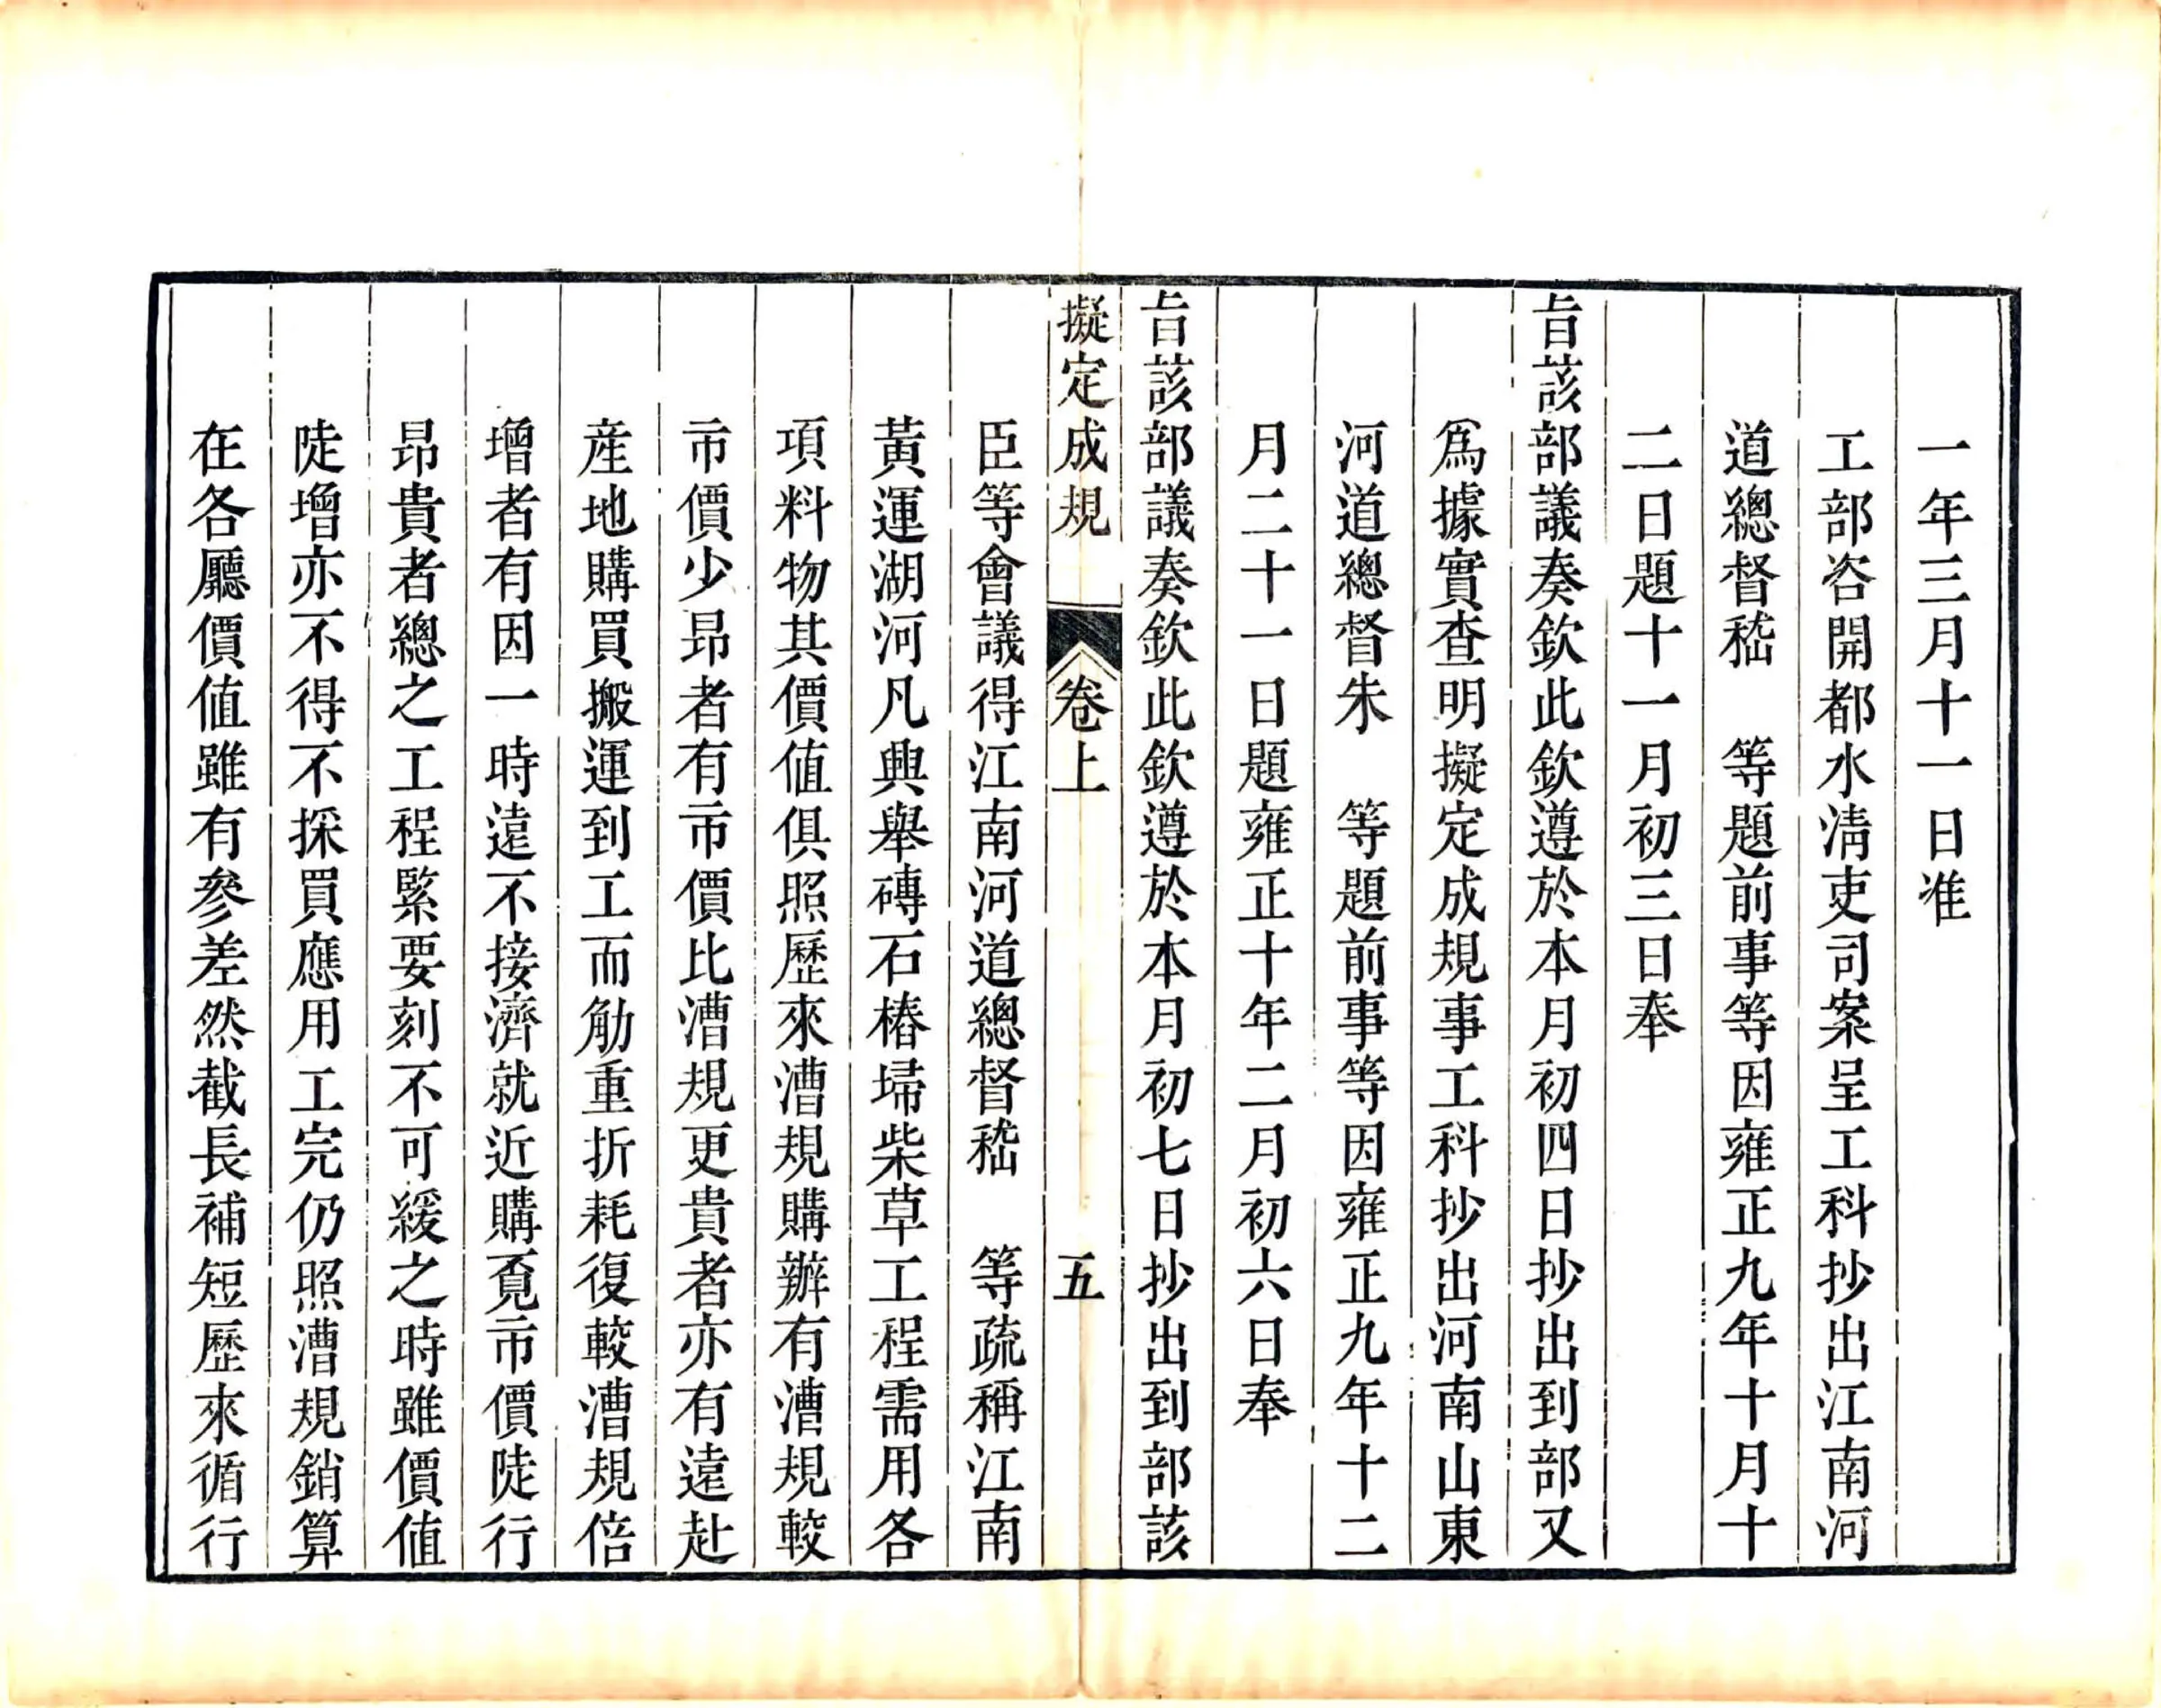 一年三月十一日准
工部咨開都水淸吏司案呈工科抄出江南河
道總督嵇　等題前事等因雍正九年十月十
二日題十一月初三日奉
旨該部議奏欽此欽遵於本月初四日抄出到部又
爲據實查明擬定成規事工科抄出河南山東
河道總督朱　等題前事等因雍正九年十二
月二十一日題雍正十年二月初六日奉
旨該部議奏欽此欽遵於本月初七日抄出到部該
擬定成規　卷上　五
臣等會議得江南河道總督嵇　等疏稱江南
黃運湖河凡興舉磚石樁埽柴草工程需用各
項料物其價值俱照歷來漕規購辦有漕規較
市價少昂者有市價比漕規更貴者亦有遠赴
産地購買搬運到工而觔重折耗復較漕規倍
增者有因一時遠不接濟就近購覓市價陡行
昂貴者總之工程緊要刻不可緩之時雖價值
陡增亦不得不採買應用工完仍照漕規銷算
在各廳價值雖有參差然截長補短歷來循行